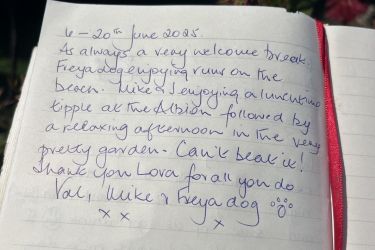 6 - 20th June 2025.
As always a very welcome break.
Freya dog enjoying runs on the
beach. Mike & I enjoying a lunchtime
tipple at the Albion followed by
a relaxing afternoon in the very
pretty garden. Can't beat it!
Thank you Lova for all you do
Val, Mike & Freya dog
x x x